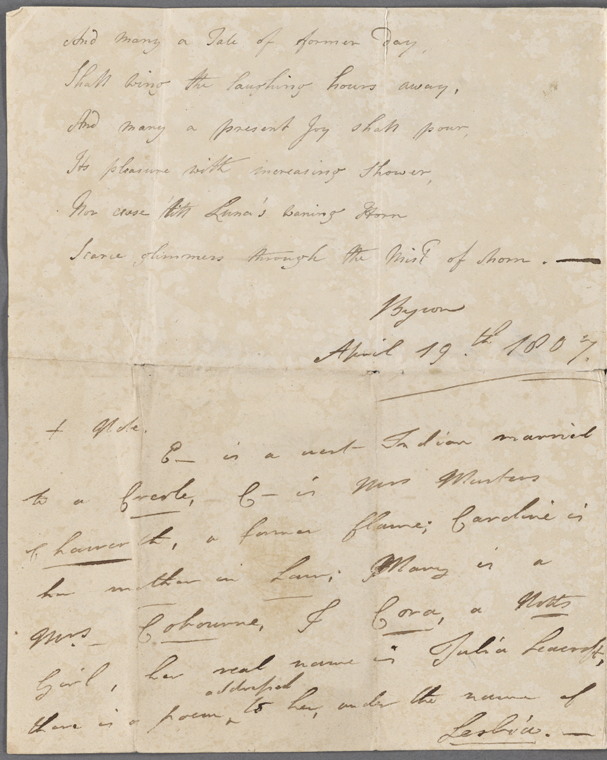 And many a Tale of former Day,
Shall wing the laughing hours away,
And many a present Joy shall pour,
Its pleasure with increasing Shower,
Nor cease till Luna's waning Horn
Scarce glimmers through the Mist of Morn. —
Byron
April 19.th 1807.
+ Note.
E— is a west Indian married
to a Creole, C— is Mrs Musters
Chaworth, a former flame; Caroline is
her mother in Law; Mary is a
Mrs. Cobourne, & Cora, a Notts
Girl, her real name is Julia Leacroft,
addressed
there is a poem, ‸ to her, under the name of
Lesbia. —